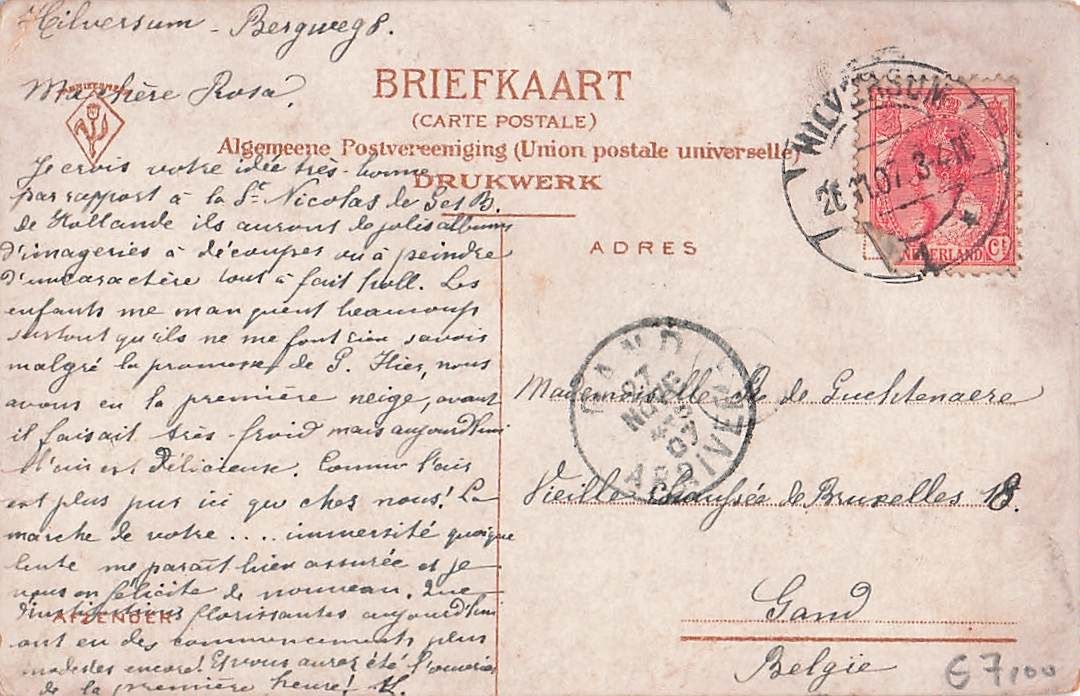 Hilversum - Bergweg 8.
Ma chère Rosa,
BRIEFKAART
(CARTE POSTALE)
Algemeene Postvereeniging (Union postale universelle)
DRUKWERK
HILVERSUM
26 11.07 3-4N
1
NEDERLAND Ct
ADRES
Je crois votre idée très-bonne
par rapport à la St. Nicolas le S et B.
de Hollande ils aurons de jolis albums
d'imageries à découper ou à peindre
d'un caractère tout à fait holl. Les
enfants me manquent beaucoup
surtout qu'ils ne me font rien savoir
malgré la promesse de P. Hier, nous
avons eu la première neige, avant
il faisait très-froid mais aujourd'hui
l'air est délicieuse. Comme l'air
est plus pur ici que chez nous! La
marche de votre .... immersité quoique
lente me paraît bien assurée et je
vous en félicite de nouveau. Que
d'institutions florissantes aujourd'hui
ont eu des commencements plus
modestes encore! Et vous aurez été l'ouvrière
de la première heure!
AFZENDER
GAND
27
NOVE
07
ARRIVÉE
Mademoiselle de Luchtenaere
Vieille Chaussée de Bruxelles 18.
Gand
Belgie
€ 7,00